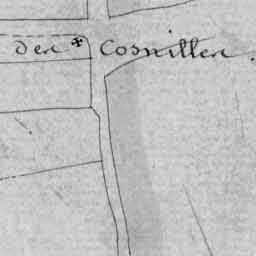 den Cosnillen.